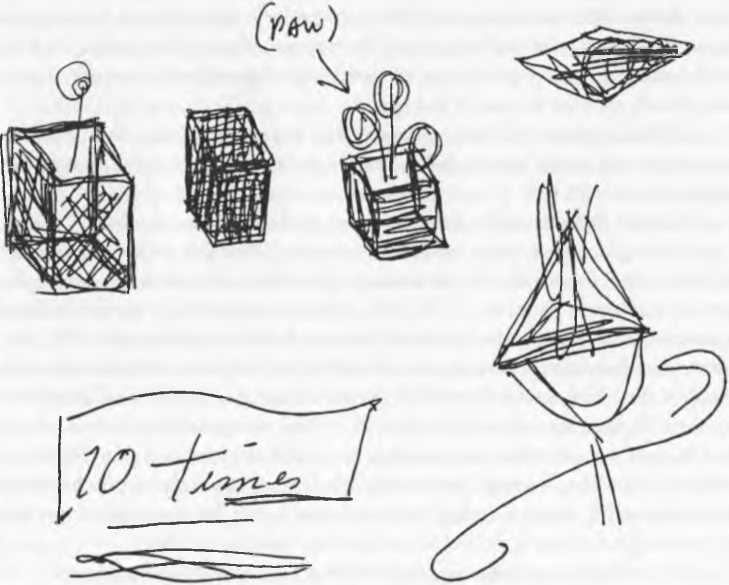 (PAW)
10 Times